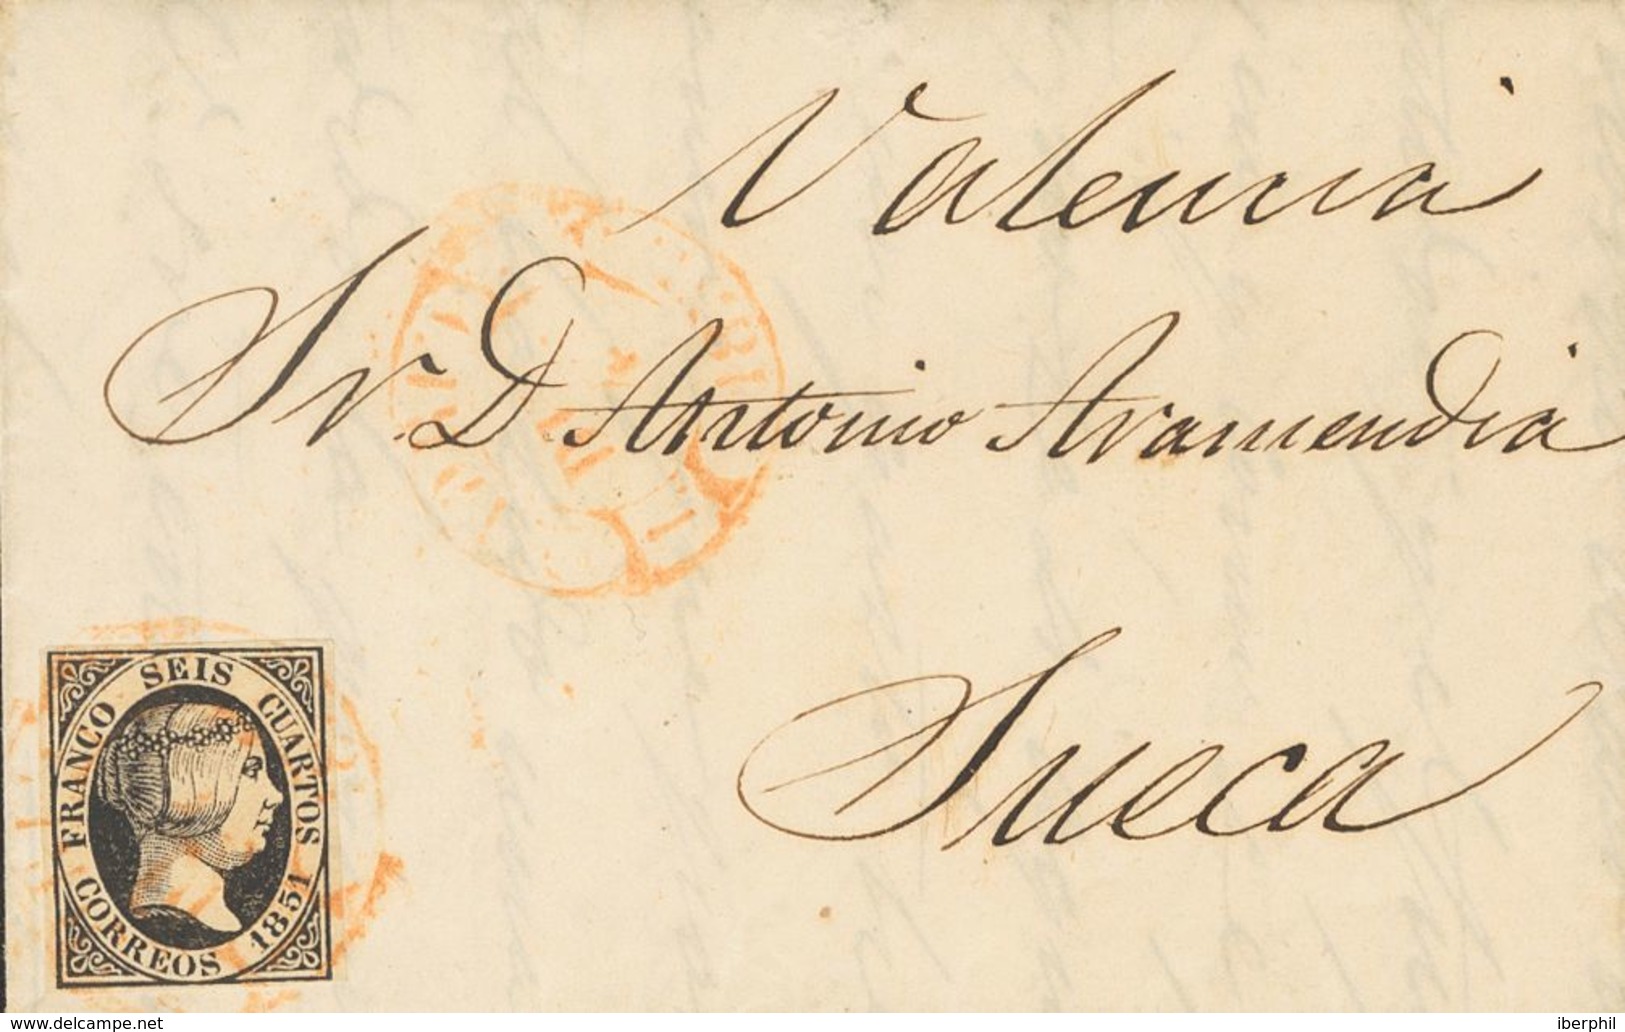 Valencia
Sr. D. Antonio Aramendia
Sueca
FRANCO SEIS CUARTOS
CORREOS 1851
www.delcampe.net
iberphil